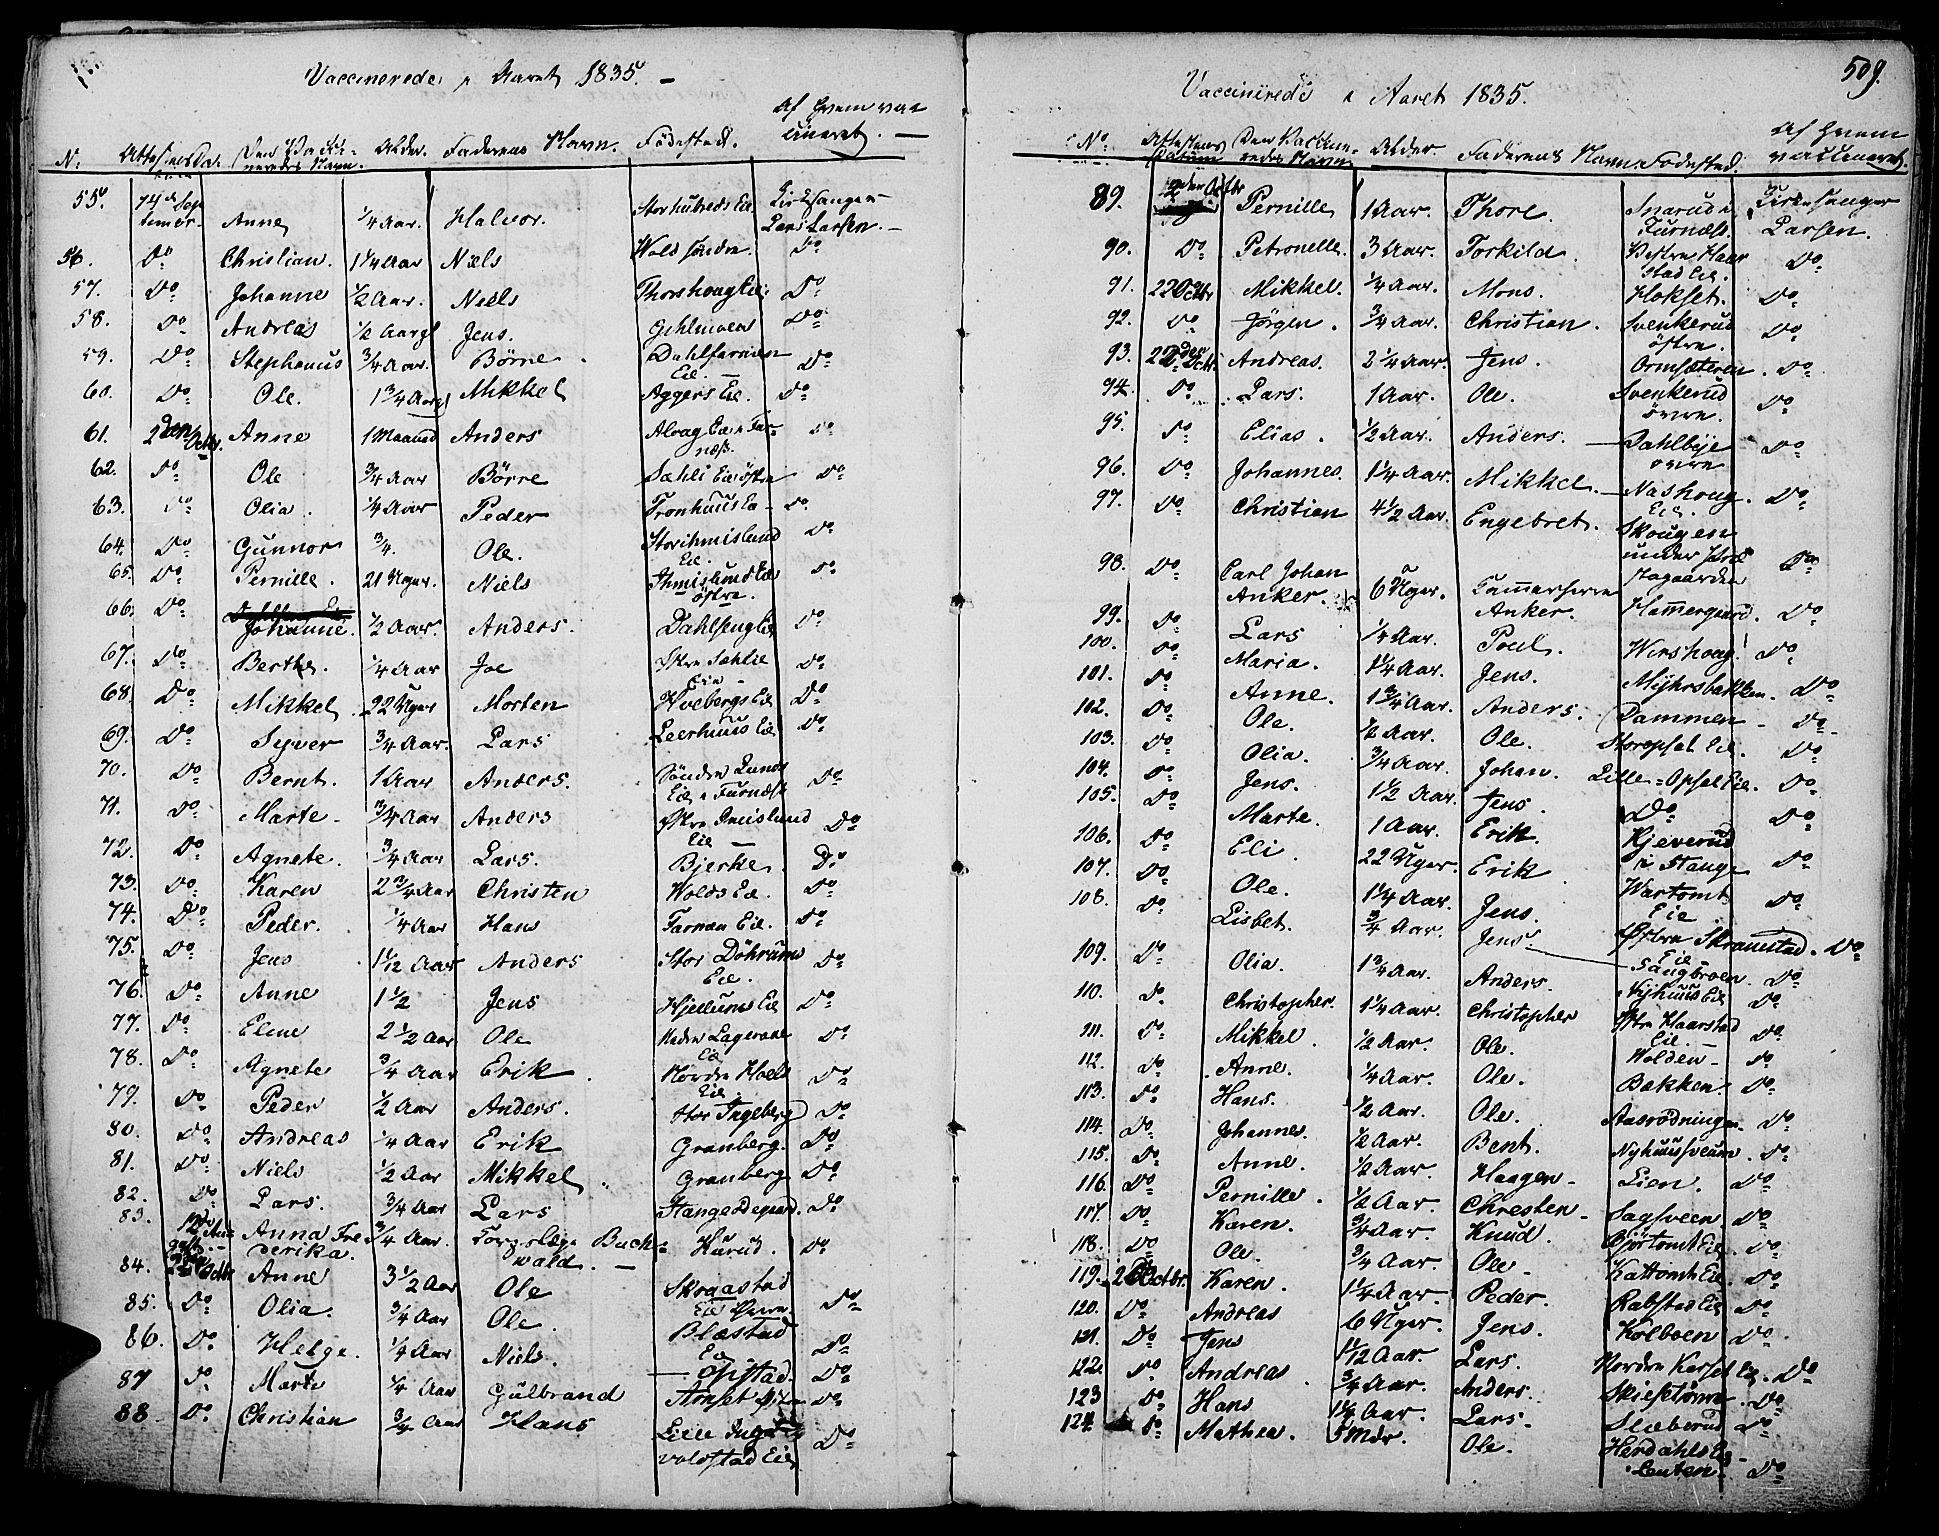 Vaccinerede i Aaret 1835. –
N: Attestens Da- tum Den Vacci- neredes Navn. Alder. Faderens Navn. Födested. Af hvem vac cineret. –
55. Sep temer. Anne 1/4 Aar. Halvor. Storhubreds Eie. Kirkesanger Lars Larsen. –
56. Do Christian. 1 1/4 Aar Niels Wold söndre. Do
57. Do Johanne 1/2 Aar. Niels Thorshoug Eie. Do
58. Do Andreas 1/2 Aar Jens. Do
59. Do Stephanus 3/4 Aar. Börne Eie. – Do
60. Do Ole. 1 3/4 Aar Mikkel Aggers Eie. Do
61. 2den Octbr. Anne 1 Maaned Anders Alvag Eie i Fur- næss. Do
62. Do Ole 3/4 Aar Börre Sæhli Eie östre Do
63. Do Olia. 1/4 Aar Peder Do
64. Do Gunnor 3/4. Ole. Storihmislund Eie. Do
65. Do Pernille. 21 Uger. Niels Ihmislund Eie östre. Do
66. Do Johanne. 1/2 Aar. Anders. Dahlseng Eie Do
67. Do Berthe. 1/4 Aar Joe Östre Sæhlie Eie Do
68. Do Mikkel. 22 Uger Morten Hvebergs Eie Do
69. Do Syver 3/4 Aar. Lars Leerhuus Eie Do
70. Do Bernt. 1 Aar Anders. Söndre Lunds Eie i Furnæss Do
71. Do Marte 3/4 Aar Anders Östre Imislund Eie – Do
72. Do Agnete. 3/4 Aar Lars. Bjerke. Do
73. Do Karen 2 3/4 Aar Christen Wolds Eie. Do
74. Do Peder. 1/4 Aar Hans Farmen Eie. Do
75. Do Jens 1 1/12 Aar Anders Stor Döhrums Eie. Do
76. Do Anne 1 1/2 Jens Hjellums Eie Do
77. Do Elene 2 1/2 Aar Ole Nedre Lageraae Eie Do
78. Do Agnete 3/4 Aar Erik. Nordre Hoels Eie Do
79. Do Peder 1/2 Aar Anders. Stor Ingeberg Do
80. Do Andreas 1/4 Aar Erik Granberg. Do
81. Do Niels 1/2 Aar Mikkel. Granberg Do
82. Do Lars. 3/4 Aar Lars Stange Do
83. Anna Fre derika. 3/4 Aar. Buch wald. – Do
84. Octbr Anne 3 1/2 Aar Ole Skraastad Eie övre.
85. Do Olia. 3/4 Aar Ole. Blæstad Eie Do
86. Do Helge. 1/4 Aar Niels. Opstad. Do
87 Do Marte 1/4 Aar Gulbrand Arnset Do
88. Do Christian 3/4 Aar Hans Lille Inge voldstad Eie Do
509.
Vaccinerede i Aaret 1835.
No. Attestens Datum Den Vaccine- redes Navn Alder. Faderens Navn. Födested. Af hvem vaccineret.
89. Octbr Pernille 1 Aar. Thore. Snarud i Furnæss. Kirkesanger Larsen.
90. Do Petronelle. 3 Aar. Torkild. Vestre Haar stad Eie. Do
91. 22 Octbr Mikkel. 1/4 Aar. Mons. Hokset. Do
92. Do Jörgen. 3/4 Aar. Christian. Svenkerud östre. Do
93. 22den Octbr. Andreas. 2 1/4 Aar. Jens. Ormsæteren. Do
94. Do Lars. 1 Aar. Ole. Svenkerud övre. Do
95. Do Elias. 1/2 Aar. Anders. Dahlbye övre Do
96. Do Johannes. 1 1/4 Aar. Mikkel. Nashoug. Eie. Do
97. Do Christian 4 1/2 Aar. Engebret. Skougen under stagaarden Do
98. Do Carl Johan Anker. 6 Uger. Kammerherre Anker. Hammergaard. Do
99. Do Lars 1/4 Aar. Poul. Wershoug. Do
100. Do Maria. 1 1/4 Aar. Jens. Myhrsbakken. Do
101. Do Anne. 1 3/4 Aar. Anders. Dammen – Do
102. Do Ole. 1/2 Aar. Ole. Storopsal Eie. Do
103. Do Olia. 3/4 Aar. Johan. Lille-Opsal Eie. Do
104. Do Jens. 1 1/2 Aar. Jens. Do Do
105. Do Marte. 1 Aar. Erik. Kjeverud i Stange Do
106. Do Eli. 22 Uger. Erik Wartomt Eie Do
107. Do Ole. 1 1/4 Aar. Jens. Östre Skramstad. Eie Do
108. Do Lisbet. 3/4 Aar. Jens. Sangbroen. Do
109. Do Olia. 1 3/4 Aar. Anders. Nyhuus Eie Do
110. Do Christopher. 1 1/4 Aar. Christopher Östre Haarstad Eie. – Do
111. Do Mikkel. 1/2 Aar. Ole. Wolden – Do
112. Do Anne. 1/4 Aar. Ole. Bakken. Do
113. Do Hans. 1/2 Aar. Ole. Aasrödningen. Do
114. Do Johannes. 1/2 Aar. Bent. Nyhuusveum. Do
115. Do Anne. 1/2 Aar. Haagen – Lien. Do
116. Do Pernille. 1/2 Aar. Chresten – Sagsveen. Do
117. Do Karen. 3/4 Aar. Knud. Björtomt Eie. Do
118. Do Ole. 3/4 Aar. Ole – Kattomt Eie. Do
119. 26 Octbr. Karen. 1 1/4 Aar. Peder. Rabstad Eie Do
120. Do Andreas 6 Uger. Jens. Kolboen Do
121. Do Jens 1 1/12 Aar. Lars. Nordre Karset Eie. Do
122. Do Andreas. 3/4 Aar. Anders. Skiesetörne. Do
123 Do Hans 1 1/4 Aar. Lars – Slæberud Do
124. Do Mathea. 5 Mdr. Ole. Herdahls Eie – Leuten. Do